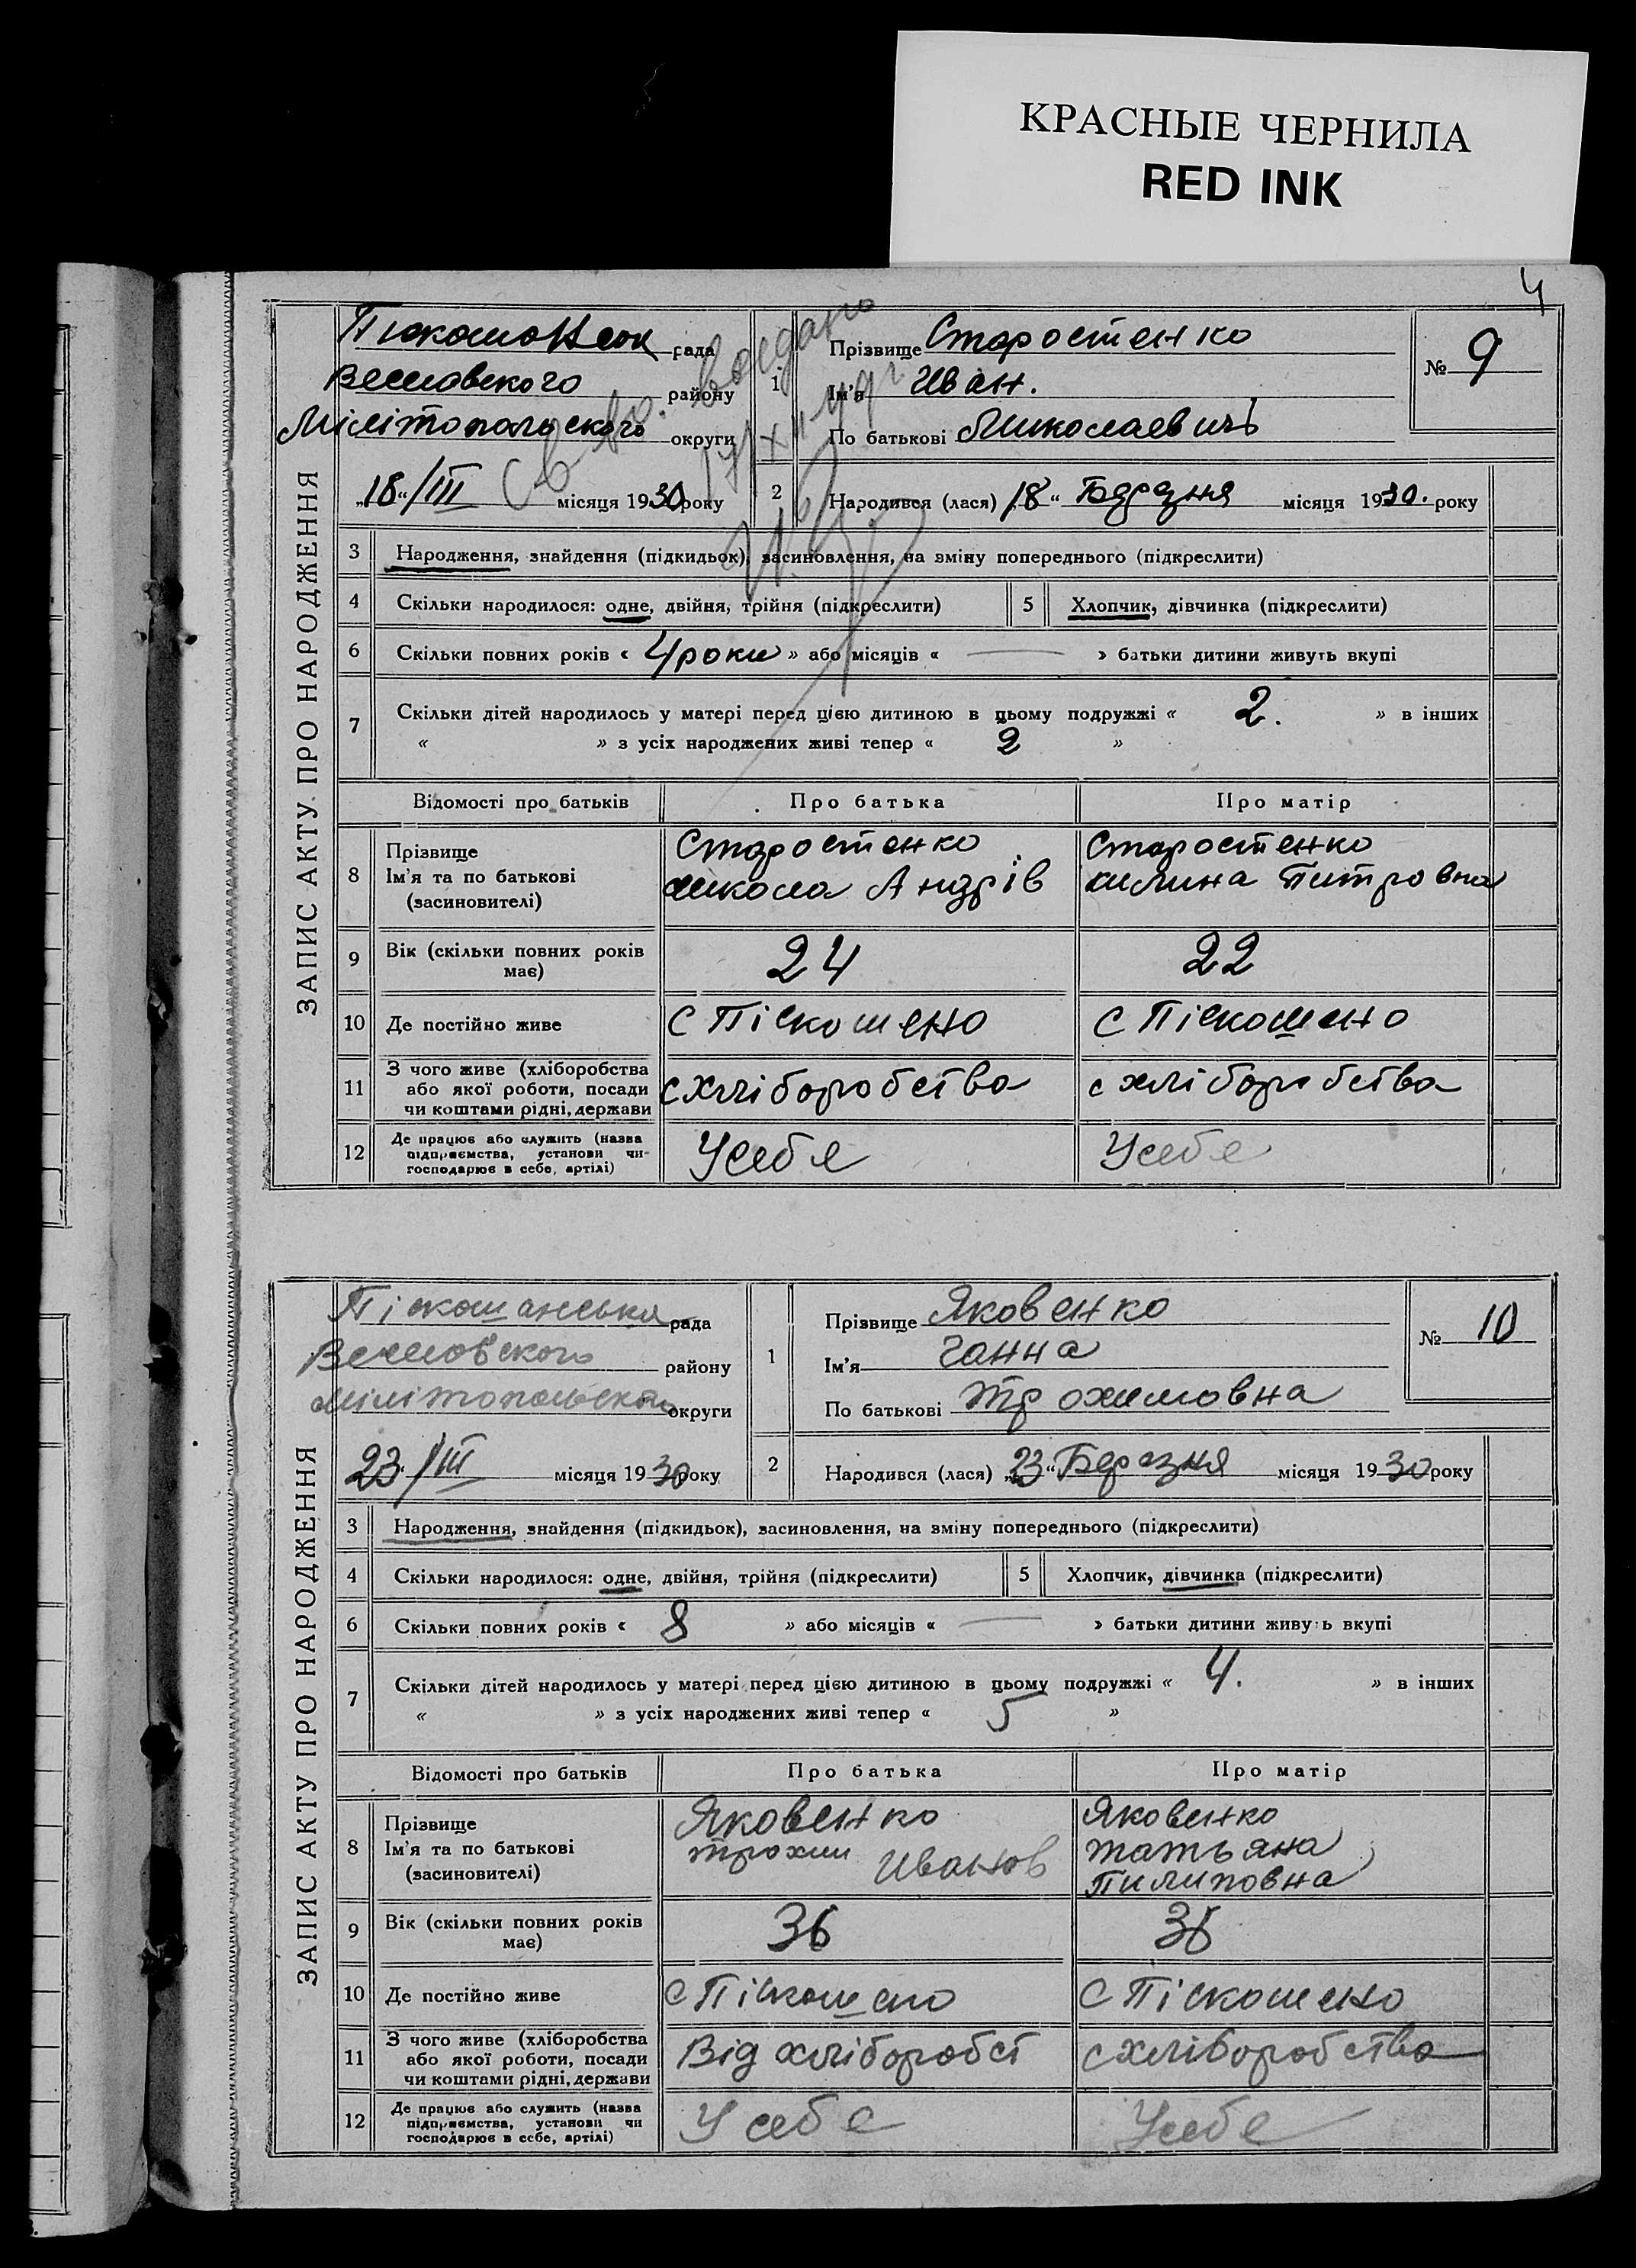 КРАСНЫЕ ЧЕРНИЛА
RED INK
4
ЗАПИС АКТУ ПРО НАРОДЖЕННЯ
рада
Веселовского району
Мілітопольского округи
„18“/III місяця 1930 року
1
Прізвище Старостенко
Ім'я Иван.
По батькові Миколаевичь
№ 9
2 Народився (лася) 18 “ Березня місяця 1930. року
3 Народження, знайдення (підкидьок), засиновлення, на зміну попереднього (підкреслити)
4 Скільки народилося: одне, двійня, трійня (підкреслити) 5 Хлопчик, дівчинка (підкреслити)
6 Скільки повних років « 4 роки » або місяців « — » батьки дитини живуть вкупі
7 Скільки дітей народилось у матері перед цією дитиною в цьому подружжі « 2. » в інших
« » з усіх народжених живі тепер « 2 »
Відомості про батьків Про батька Про матір
8 Прізвище
Ім'я та по батькові
(засиновителі)
Старостенко
микола Андрів
Старостенко
килина Питровна
9 Вік (скільки повних років
має)
24 22
10 Де постійно живе С Піскошено С Піскошено
11 З чого живе (хліборобства
або якої роботи, посади
чи коштами рідні, держави
с хліборобства с хліборобства
12 Де працює або служить (назва
підприємства, установи чи
господарює в себе, артілі)
Усебе Усебе
ЗАПИС АКТУ ПРО НАРОДЖЕННЯ
Піскошанська рада
Веселовского району
Мілітопольского округи
23/III місяця 1930 року
1
Прізвище Яковенко
Ім'я Ганна
По батькові Трохимовна
№ 10
2 Народився (лася) „23“ Березня місяця 1930 року
3 Народження, знайдення (підкидьок), засиновлення, на зміну попереднього (підкреслити)
4 Скільки народилося: одне, двійня, трійня (підкреслити) 5 Хлопчик, дівчинка (підкреслити)
6 Скільки повних років « 8 » або місяців « — » батьки дитини живуть вкупі
7 Скільки дітей народилось у матері перед цією дитиною в цьому подружжі « 4. » в інших
« » з усіх народжених живі тепер « 5 »
Відомості про батьків Про батька Про матір
8 Прізвище
Ім'я та по батькові
(засиновителі)
Яковенко
трохим Иванов
Яковенко
татьяна
Пилиповна
9 Вік (скільки повних років
має)
36 36
10 Де постійно живе С Піскошено С Піскошено
11 З чого живе (хліборобства
або якої роботи, посади
чи коштами рідні, держави
Від хліборобст с хліборобства
12 Де працює або служить (назва
підприємства, установи чи
господарює в себе, артілі)
Усебе Усебе